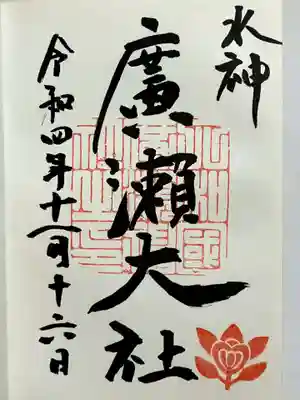 水神
廣瀬大社
令和四年十一月十六日